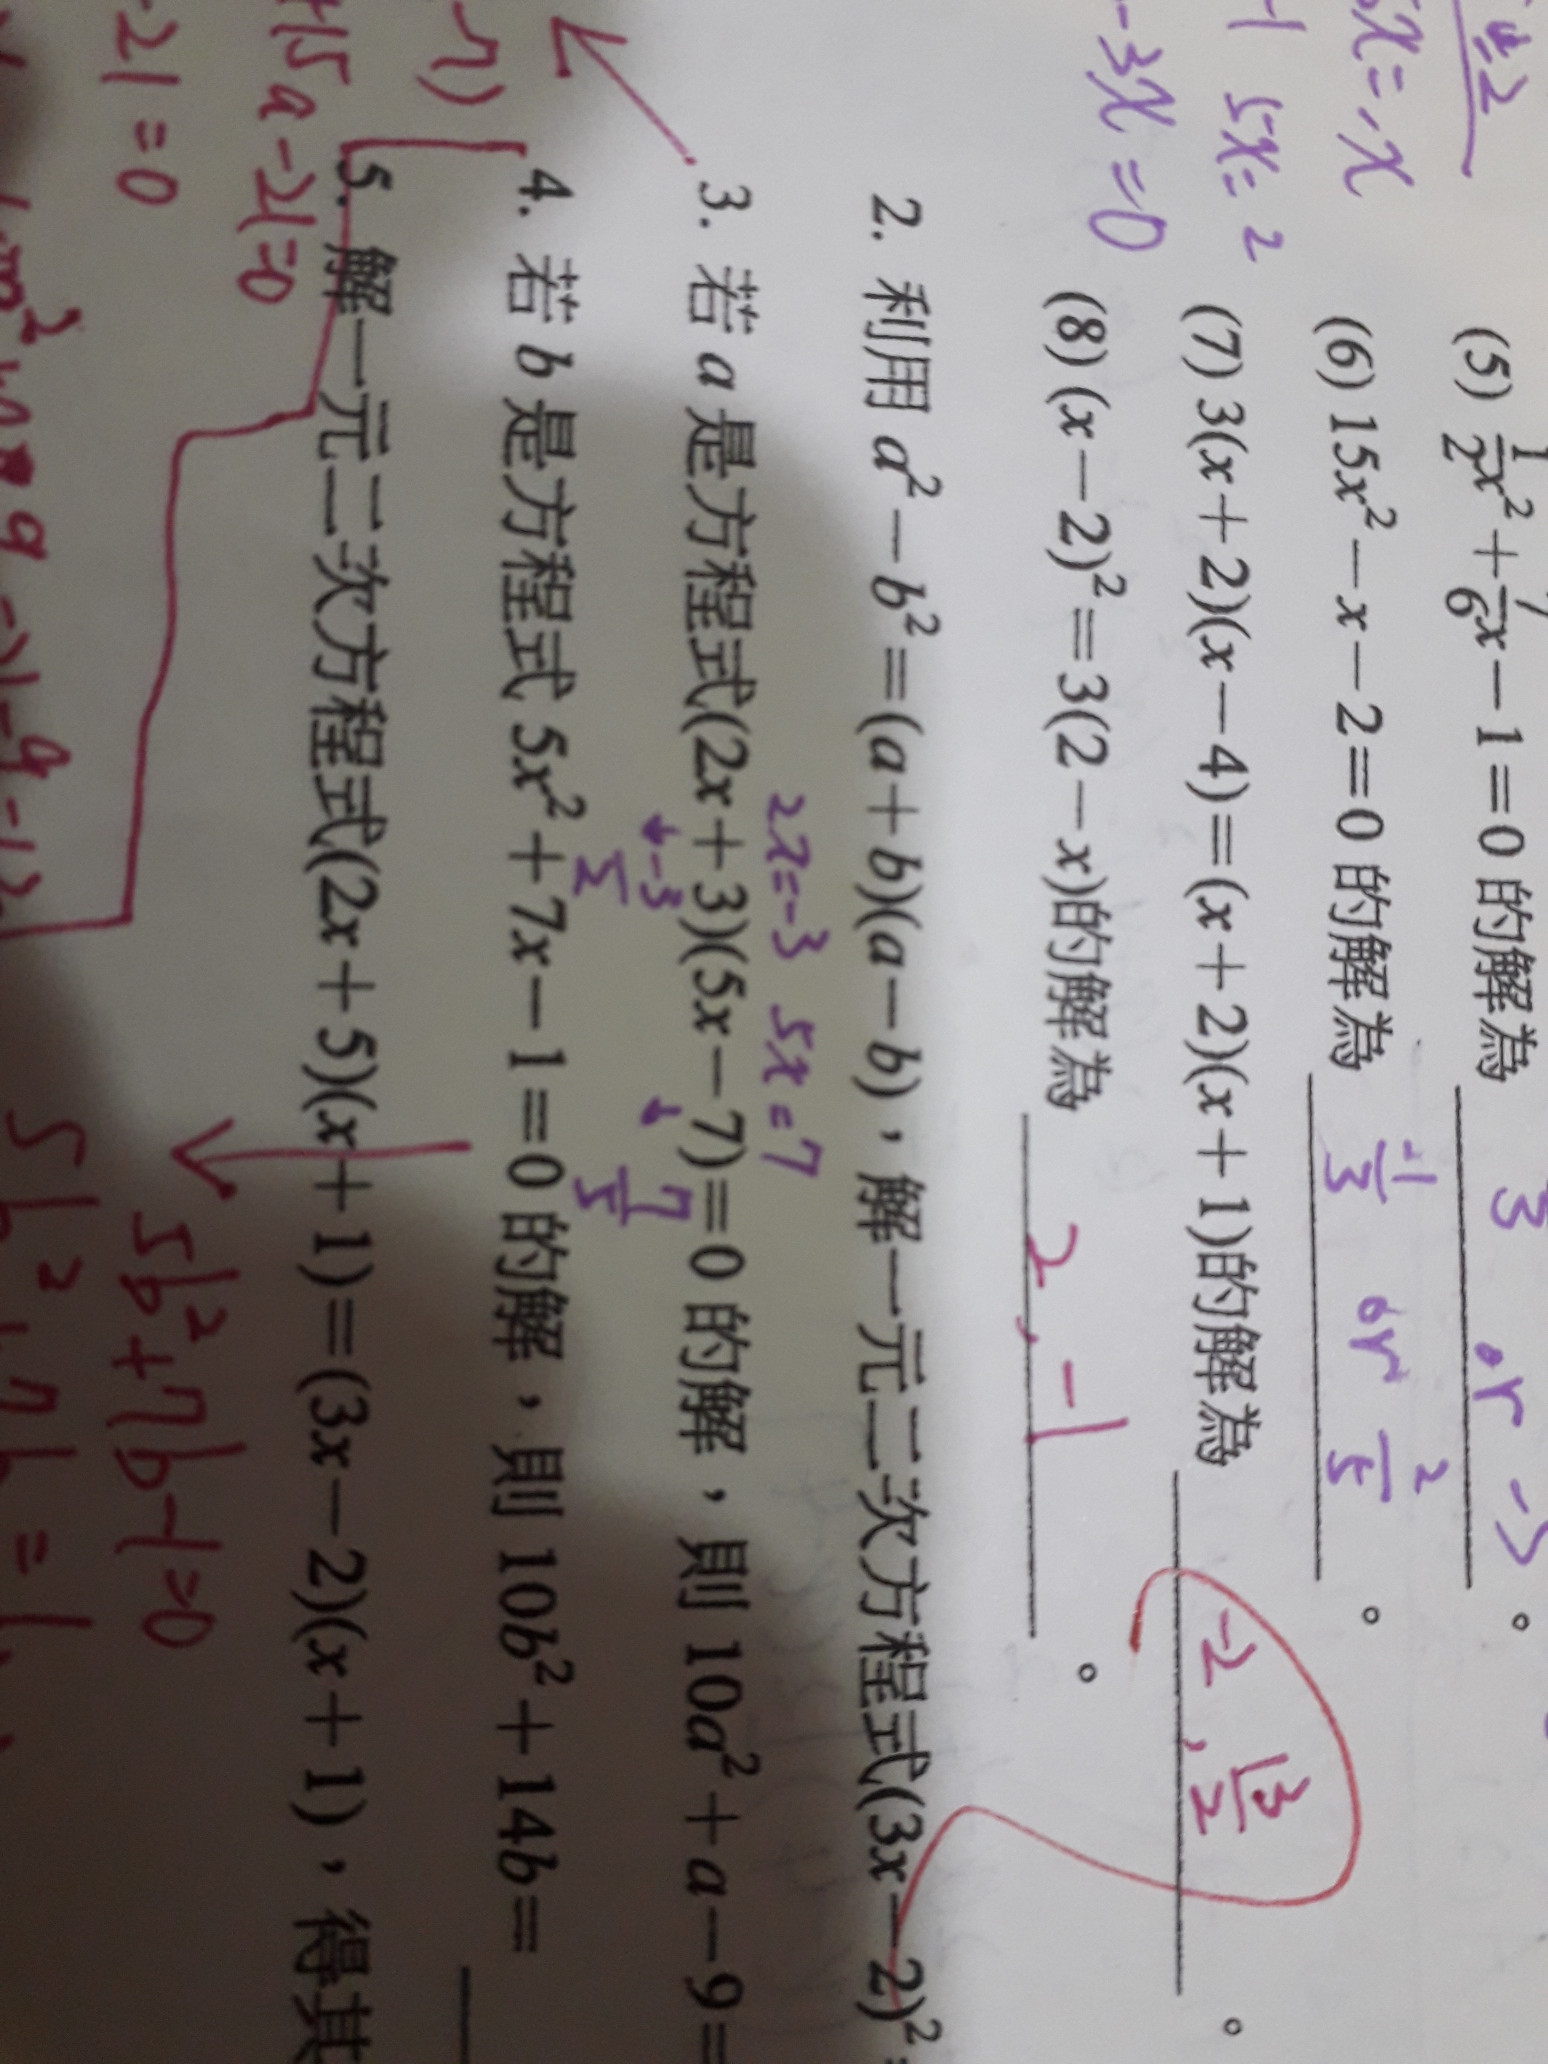 5x=2
-3x=0
(5) 1/2x²+7/6x-1=0 的解為 or
(6) 15x²-x-2=0 的解為 -1/3 or 2/5 。
(7) 3(x+2)(x-4)=(x+2)(x+1)的解為 -2, 13/2 。
(8) (x-2)²=3(2-x)的解為 2, -1 。
2. 利用 a²-b²=(a+b)(a-b),解一元二次方程式(3x-2)²
2x=-3 5x=7
3. 若 a 是方程式(2x+3)(5x-7)=0 的解,則 10a²+a-9=
-3/2 7/5
4. 若 b 是方程式 5x²+7x-1=0 的解,則 10b²+14b=
5. 解一元二次方程式(2x+5)(x+1)=(3x-2)(x+1),得其
-7)
+15a-21=0
-21=0
5b²+7b-1=0